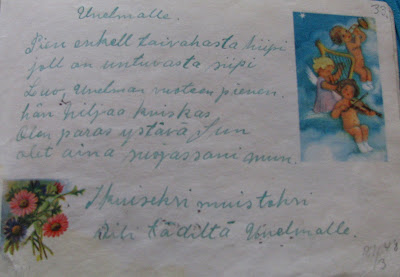 Unelmalle.
Pien enkeli taivahasta hiipi
joll on untuvasta siipi
Luo, Unelman vuoteen pienen.
hän hiljaa kuiskas
Olen paras ystävä Sun
olit aina mun.
Ikuiseksi muistoksi
Tädiltä Unelmalle.
3